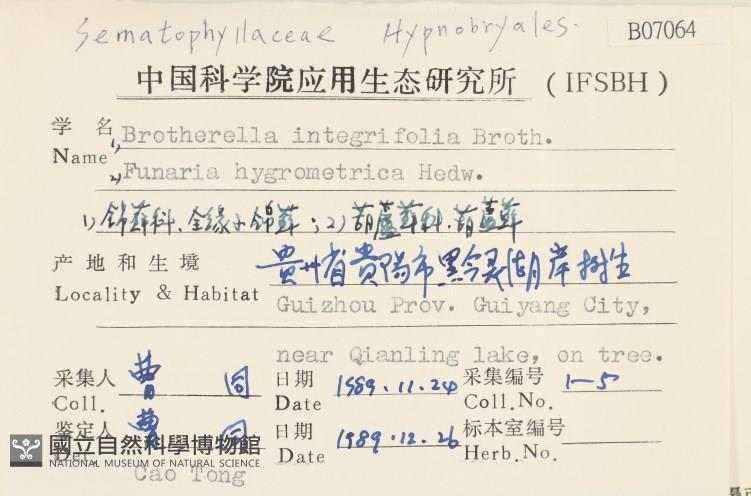 Sematophyllaceae Hypnobryales.
B07064
中国科学院应用生态研究所 (IFSBH)
学 名 1, Brotherella integrifolia Broth.
Name 2, Funaria hygrometrica Hedw.
1) 锦藓科.全缘小锦藓;2)葫蘆藓科.葫蘆藓
产地和生境 贵州省贵阳市黔灵湖岸树生
Locality & Habitat Guizhou Prov. Guiyang City,
near Qianling lake, on tree.
采集人 曹同 日期 1989.11.24 采集编号 1-5
Coll. Date Coll.No.
鉴定人 曹同 日期 1989.12.26 标本室编号
Det. Date Herb.No.
Cao Tong
國立自然科學博物館
NATIONAL MUSEUM OF NATURAL SCIENCE